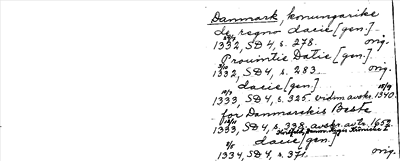 Danmark, konungarike
de regno dacie [gen.]
1332, SD 4, s. 278. orig.
Prouintie Datie [gen.]
1332, SD 4, s. 283. orig.
dacie [gen.]
1333, SD 4, s. 325. vidim. avskr. 1340.
for Danmarckis Beste
1333, SD 4, s. 338. avskr. avtr. 1652.
dacie [gen.]
1334, SD 4, s. 371. orig.